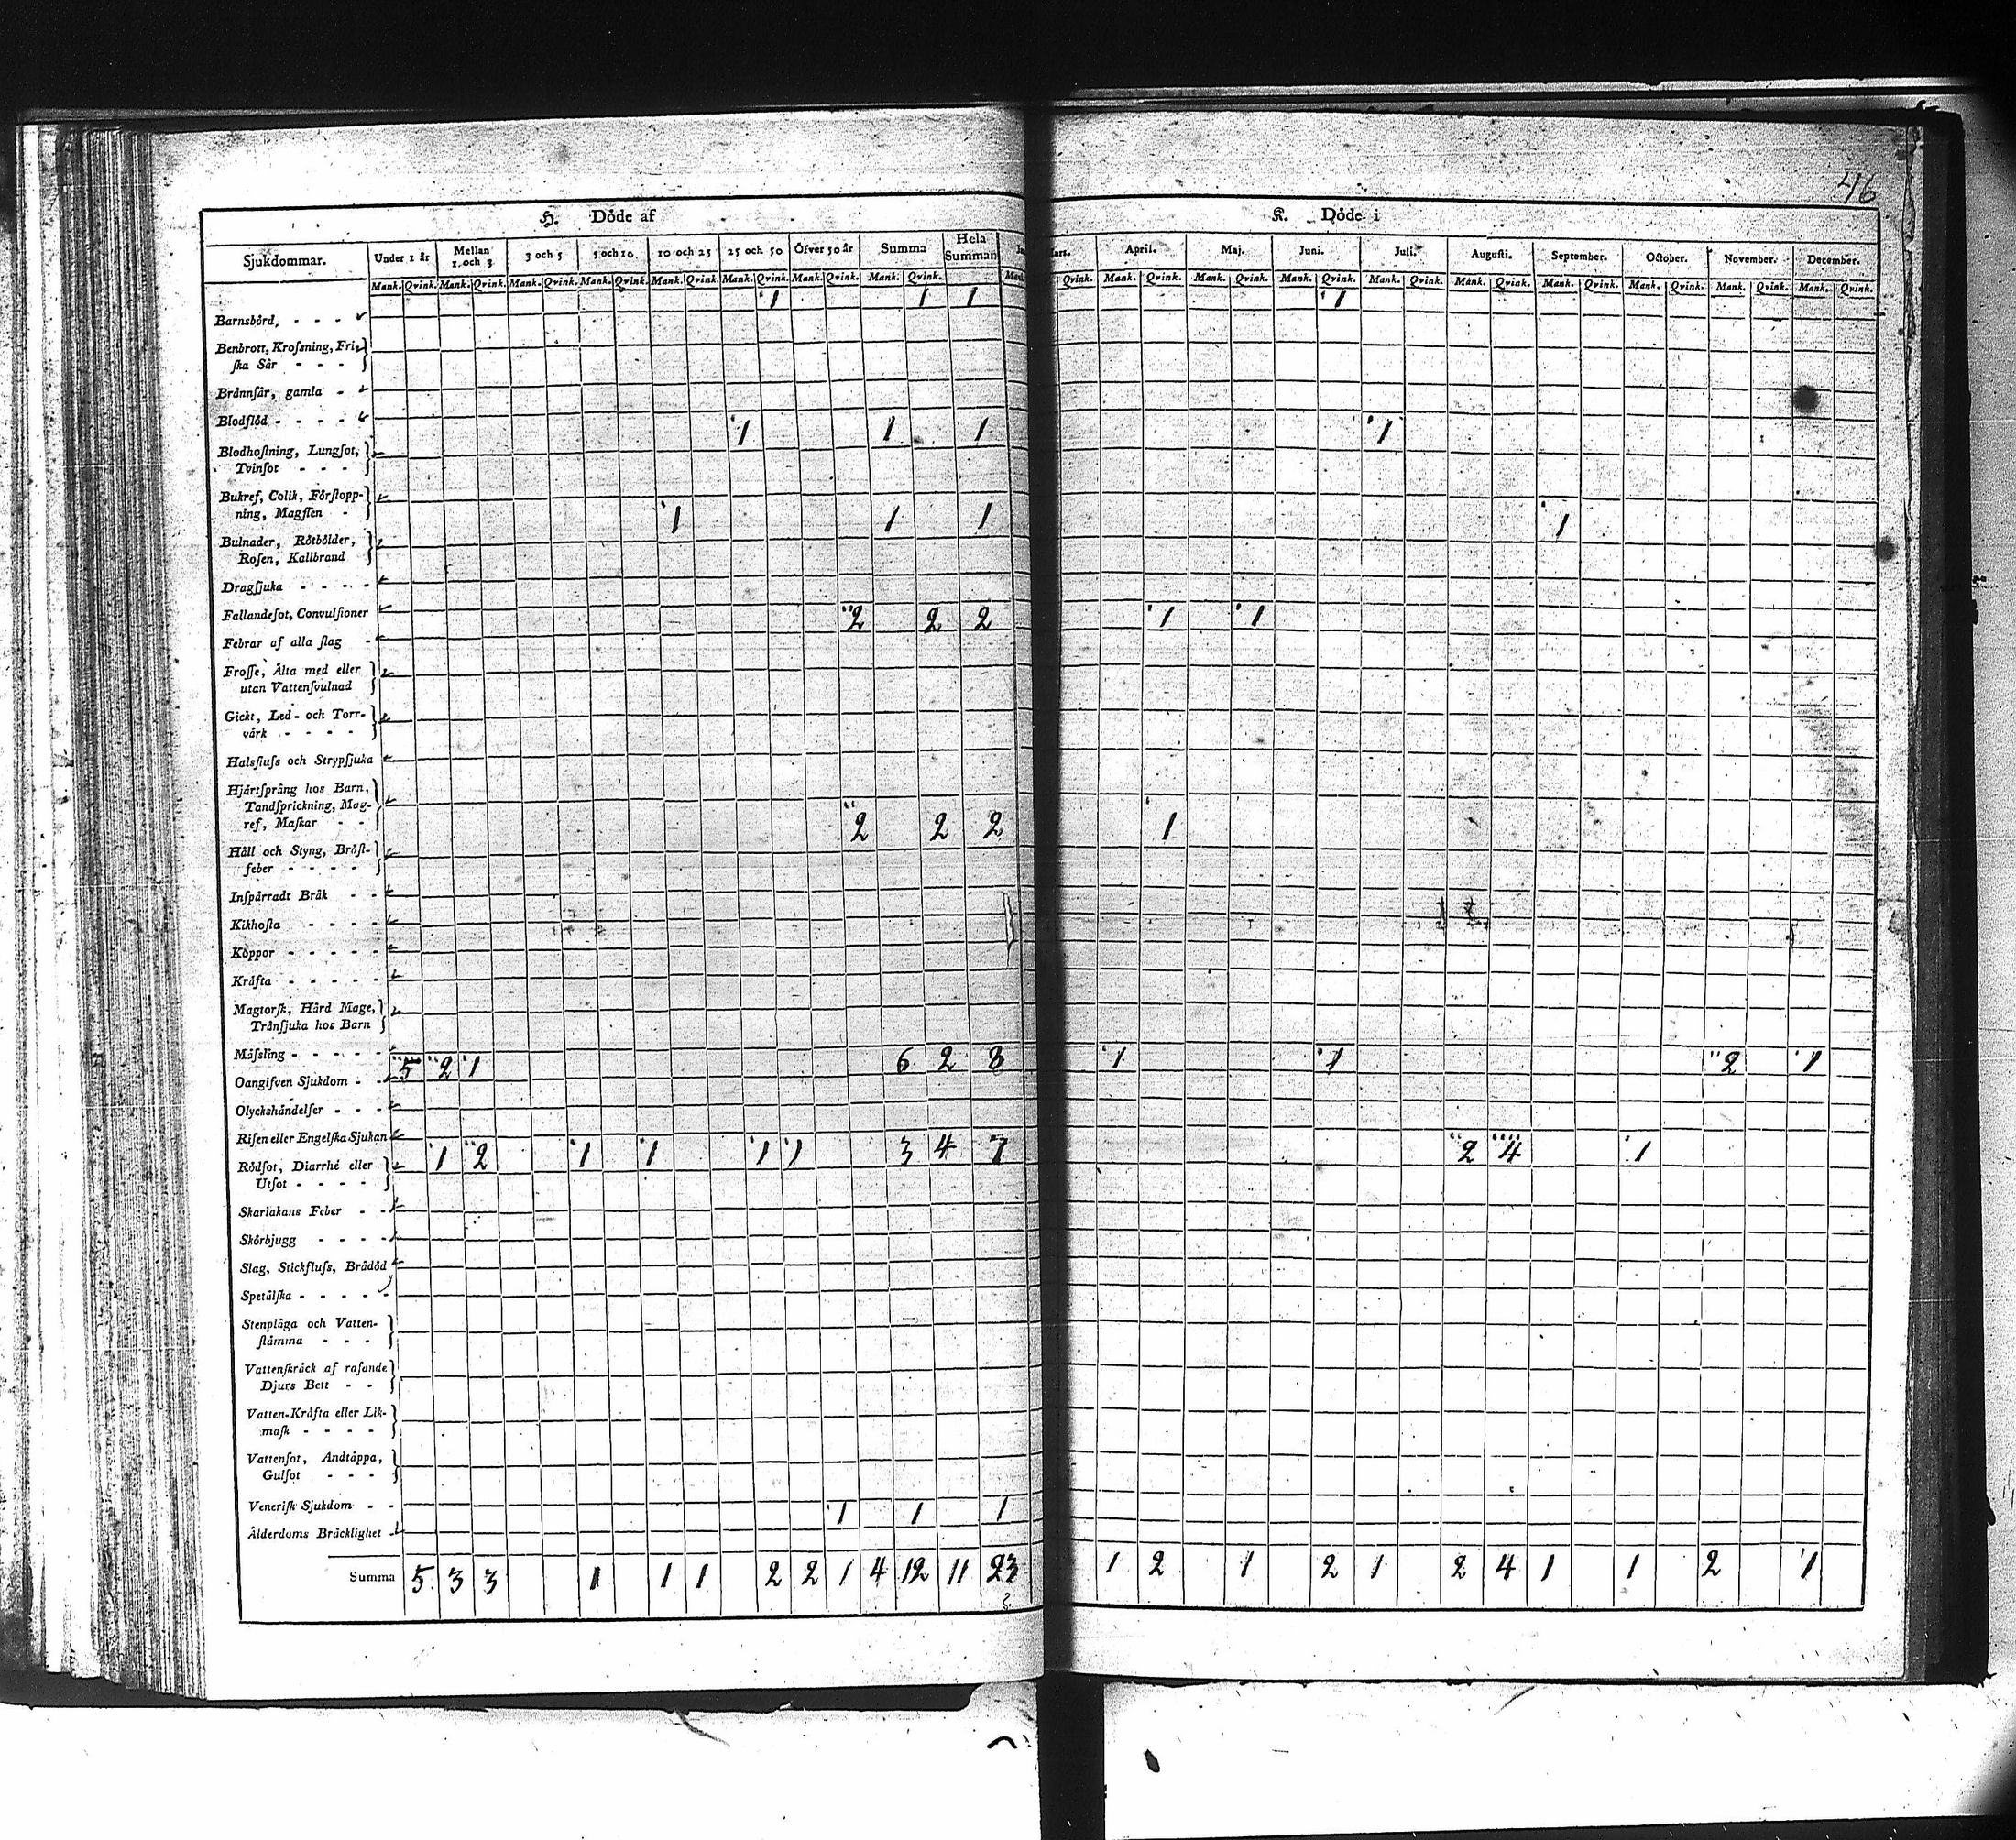 46
H. Döde af
K. Döde i
Sjukdommar. Under 1 år Mellan 1. och 3 3 och 5 5 och 10 10 och 25 25 och 50 Öfver 50 år Summa Hela Summan April. Maj. Juni. Juli. Augusti. September. October. November. December.
Mank. Qvink. Mank. Qvink. Mank. Qvink. Mank. Qvink. Mank. Qvink. Mank. Qvink. Mank. Qvink. Mank. Qvink. Mank. Qvink. Mank. Qvink. Mank. Qvink. Mank. Qvink. Mank. Qvink. Mank. Qvink. Mank. Qvink. Mank. Qvink. Mank. Qvink. Mank. Qvink.
1 1 1 1
Barnsbörd, - - -
Benbrott, Krosſning, Fri-
ſka Sår - - -
Brännſår, gamla -
Blodflöd - - - -
1 1 1 1
Blodhoſtning, Lungſot,
Tvinſot - - -
Bukref, Colik, Förſtopp-
ning, Magſten -
1 1 1 1
Bulnader, Rötbölder,
Roſen, Kallbrand
Dragſjuka - - - -
Fallandeſot, Convulſioner
2 2 2 1 1
Febrar af alla ſlag -
Froſſe, Älta med eller
utan Vattenſvulnad
Gickt, Led- och Torr-
värk - - - -
Halsfluſs och Strypſjuka
Hjärtſprång hos Barn,
Tandſprickning, Mag-
ref, Maſkar - -
2 2 2 1
Håll och Styng, Bröſt-
feber - - - -
Inſpärradt Bråk - -
Kikhoſta - - - -
Koppor - - - - -
Kräfta - - - - -
Magtorſk, Hård Mage,
Trånſjuka hos Barn
Mäſsling - - - - -
5 2 1 6 2 8 1 1 2 1
Oangifven Sjukdom - -
Olyckshändelſer - - -
Riſen eller Engelſka Sjukan
1 2 1 1 1 1 3 4 7 2 4 1
Rödſot, Diarrhé eller
Utſot - - - -
Skarlakans Feber - -
Skörbjugg - - - -
Slag, Stickfluſs, Brådöd
Spetälſka - - - - -
Stenplåga och Vatten-
ſtämma - - -
Vattenſkräck af raſande
Djurs Bett - -
Vatten-Kräfta eller Lik-
maſk - - - -
Vattenſot, Andtäppa,
Gulſot - - -
Veneriſk Sjukdom - -
1 1 1
Ålderdoms Bräcklighet -
Summa 5 3 3 1 1 1 2 2 1 4 12 11 23 1 2 1 2 1 2 4 1 1 2 1